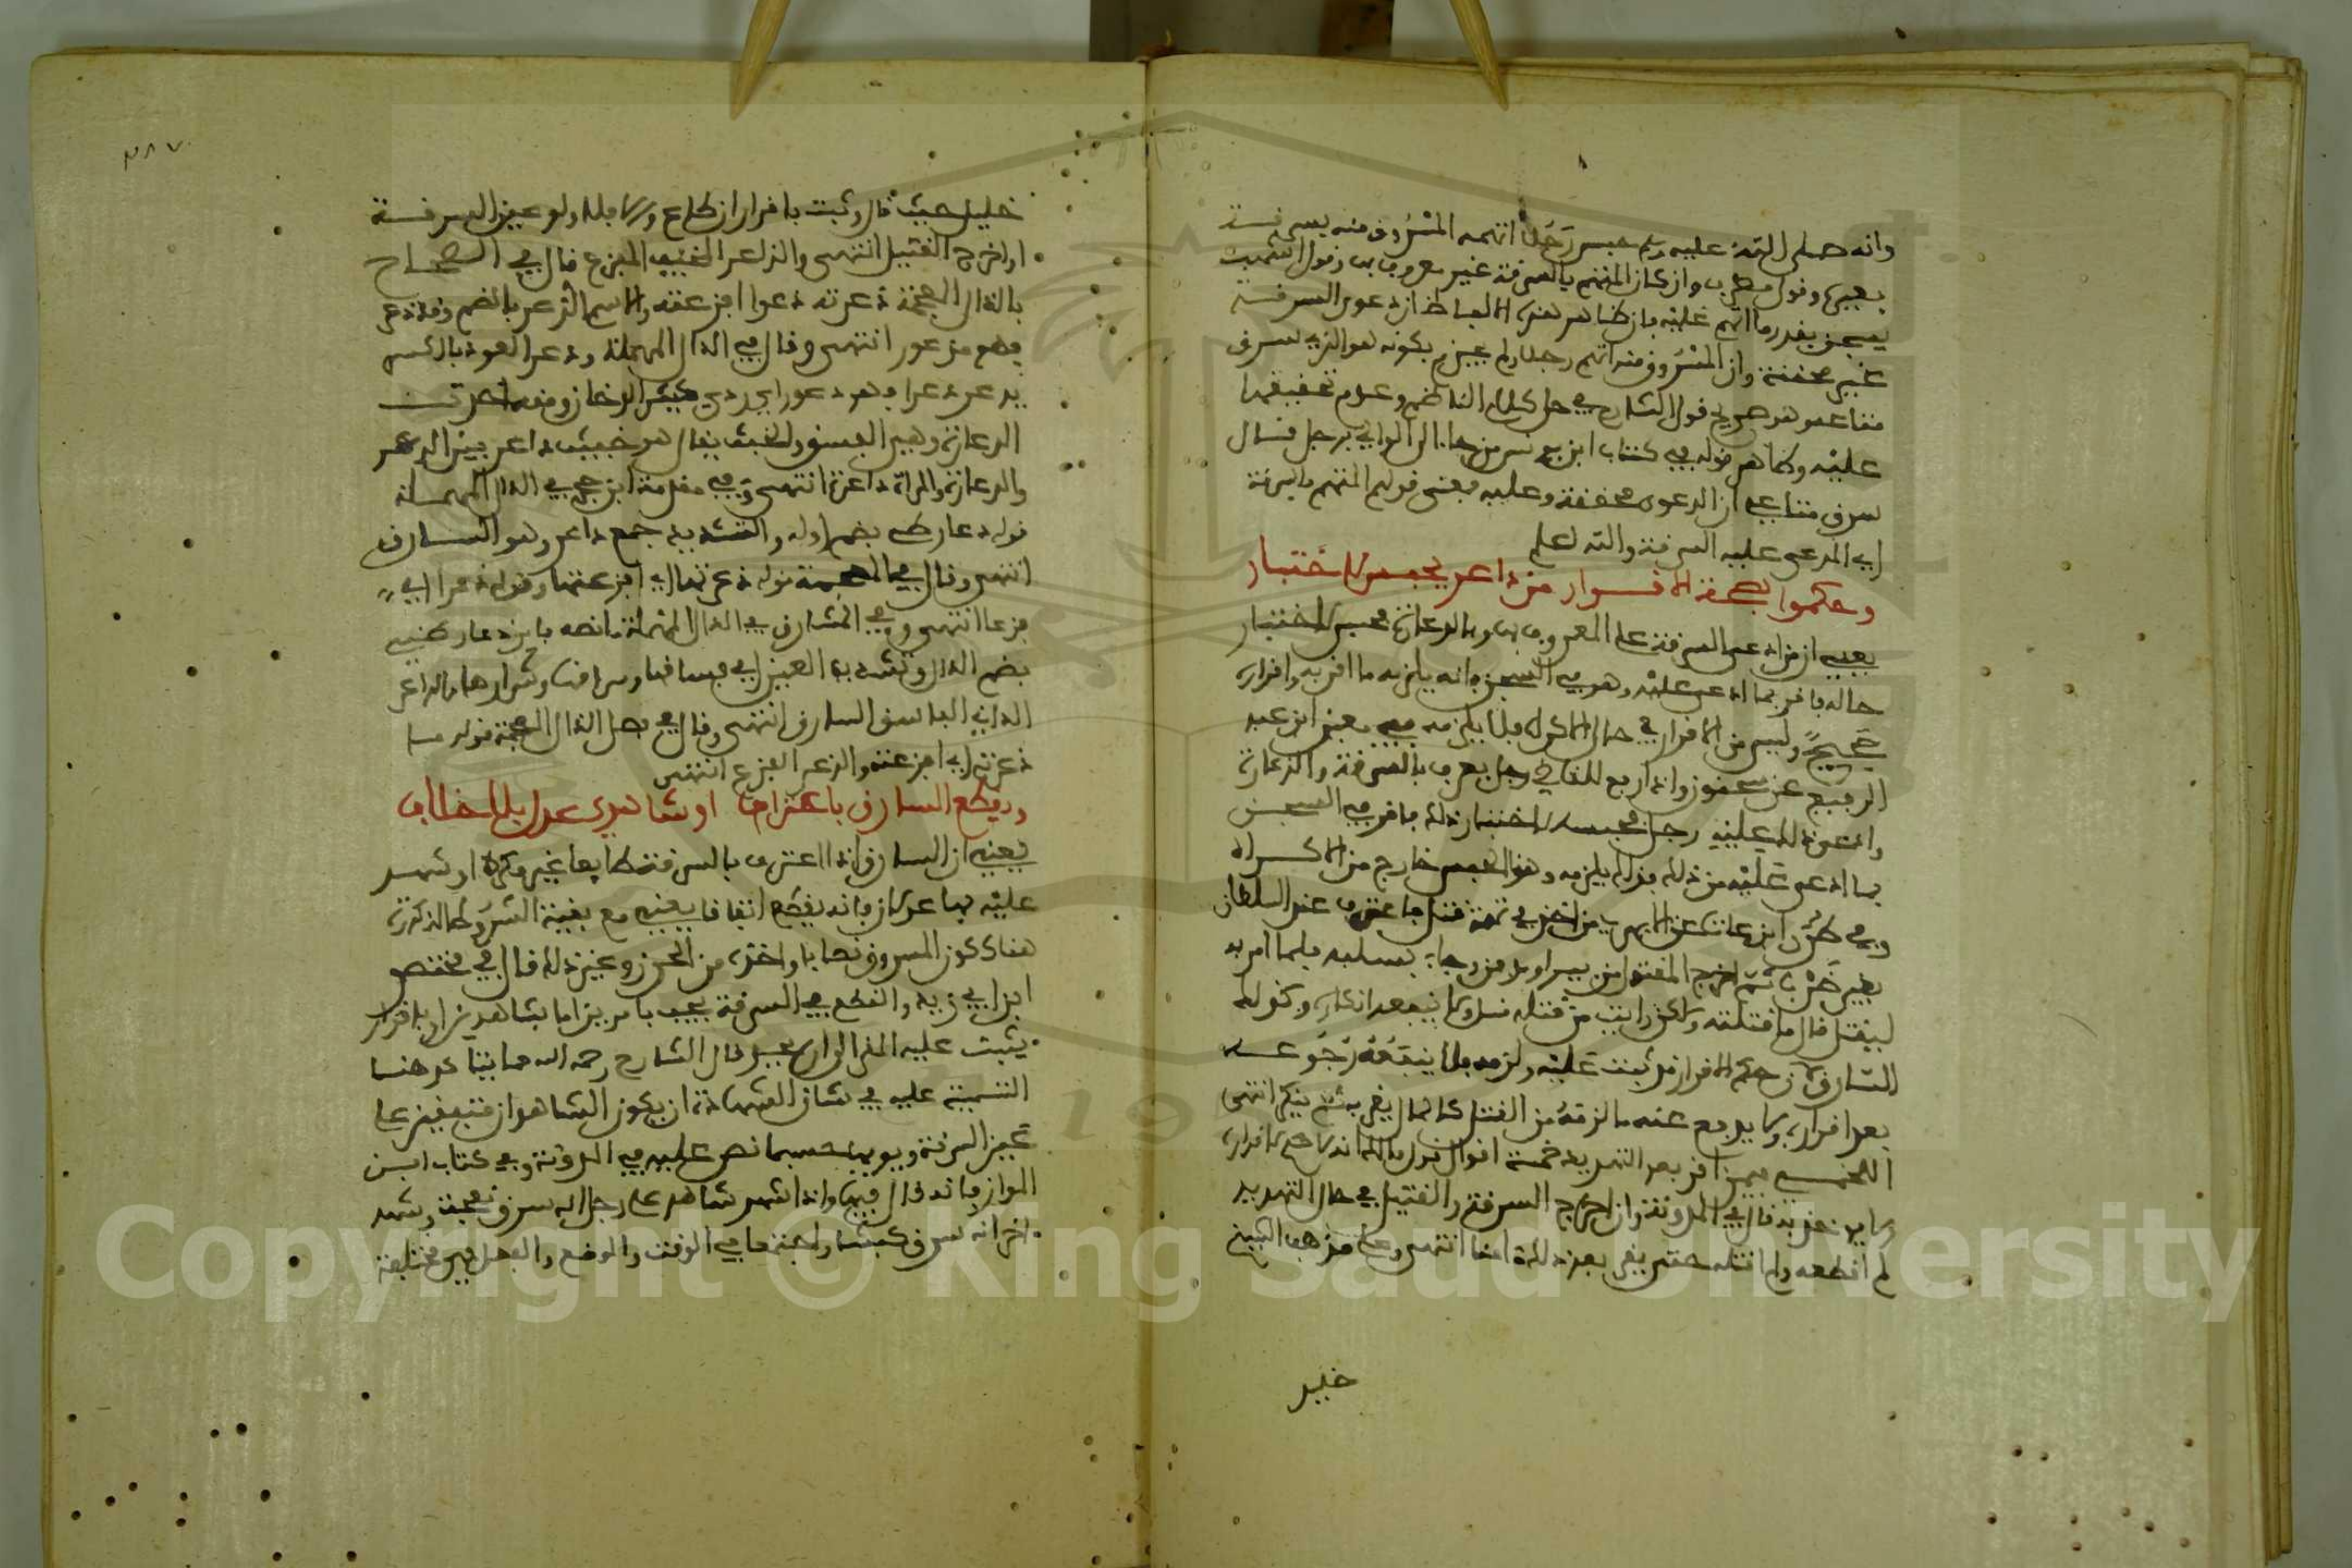 وانه صلى الله عليه وسلم حبس رجلا اتهمه المسروق منه بسرقة
يعني وقول مطرف وان كان المتهم بالسرقة غير معروف بها وقول اشهب
يسجن بقدر ما اتهم عليه فان ظاهر هذه الالفاظ ان دعوى السرقة
غير محققة وان المسروق منه اتهم رجلا ولم يجزم بكونه هو الذي سرق
متاعه هو صريح قول الشارح في حل كلام الناظم وعدم تحقيقها
عليه وظاهر قوله في كتاب ابن يونس من جاء الى الوالي برجل فقال
سرق متاعي ان الدعوى محققة وعليه فمعنى قولهم المتهم بالسرقة
اي المدعى عليه السرقة والله اعلم
وحكموا بصحة الاقرار من داعر يحبس لاختبار
يعني ان من ادعى السرقة على المعروف بها وبالدعارة فحبس لاختبار
حاله فاقر بما ادعى عليه وهو في السجن فانه يلزمه ما اقر به واقراره
صحيح وليس من الاقرار في حال الاكراه فلا يلزمه معين ابن عبد
الرفيع عن سحنون واذا رفع للقاضي رجل يعرف بالسرقة والدعارة
وادعى ذلك عليه رجل فحبسه لاختبار ذلك فاقر في السجن
بما ادعى عليه من ذلك فذلك يلزمه وهذا الحبس خارج من الاكراه
وفي طرر ابن عات عن الابهري من اخذ في تهمة قتل فاعترف عند السلطان
بغير ضرب ثم اخرج المقتول من بير او مدفن وجاء بسلبه فلما امر به
ليقتل قال ما قتلته ولكن رايت من قتله قتل ولا ينفعه انكاره وكذلك
السارق لان حكم الاقرار قد ثبت عليه ولزمه فلا ينفعه رجوعه
بعد اقراره ولا يدفع عنه ما لزمه من القتل كالمال يقر به ثم ينكر انتهى
اللخمي فيمن اقر بعد التهديد خمسة اقوال قول مالك انه لا حكم لاقراره
ولا يؤخذ به قال في المدونة وان اخرج السرقة والقتيل في حال التهديد
لم اقطعه ولم اقتله حتى يقر بعد ذلك امنا انتهى وعلى مذهب الشيخ
خليل
٢٨٧
خليل حيث قال وثبت باقرار ان طاع والا فلا ولو عين السرقة
او اخرج القتيل انتهى والذاعر الخفيف المفزع قال في الصحاح
بالذال المعجمة ذعرته ذعرا افزعته والاسم الذعر بالضم وقد ذعر
فهو مذعور انتهى وقال في الدال المهملة ودعر العود بالكسر
يدعر دعرا فهو دعر اي ردي كثير الدخان ومنه اخذت
الدعارة وهي الفسق والخبث يقال هو خبيث داعر بين الدعر
والدعارة والمراة داعرة انتهى وفي مقدمة ابن حجر في الدال المهملة
قوله دعار طي بضم اوله والتشديد جمع داعر وهو السارق
انتهى وقال في المعجمة قوله ذعرتها اي افزعتها وقوله ذعرا اي
فزعا انتهى وفي المشارق في الدال المهملة ما نصه فاين دعار طيي
بضم الدال وتشديد العين اي فساقها وسراقها وشرارها والداعر
الداني الفاسق السارق انتهى وقال في فصل الذال المعجمة قوله ما
ذعرته اي افزعته والذعر الفزع انتهى
ويقطع السارق باعتراف او شاهدي عدل بلا خلاف
يعني ان السارق اذا اعترف بالسرقة طايعا غير مكره او شهد
عليه بها عدلان فانه يقطع اتفاقا يعني مع بقية الشروط المذكورة
هنا ككون المسروق نصابا واخذه من الحرز وغير ذلك قال في مختصر
ابن ابي زيد والقطع في السرقة يجب بامرين اما بشاهدين او باقرار
يثبت عليه المقر قال الشارح رحمه الله مما يتاكد هنا
التنبيه عليه في شان الشهادة ان يكون الشاهدان متفقين على
عين السرقة ويومها حسبما نص عليه في المدونة وفي كتاب ابن
المواز فانه قال فيها واذا شهد شاهد على رجل انه سرق نعجة وشهد
اخر انه سرق كبشا واجتمعا في الوقت والموضع والفعل فهي مختلفة